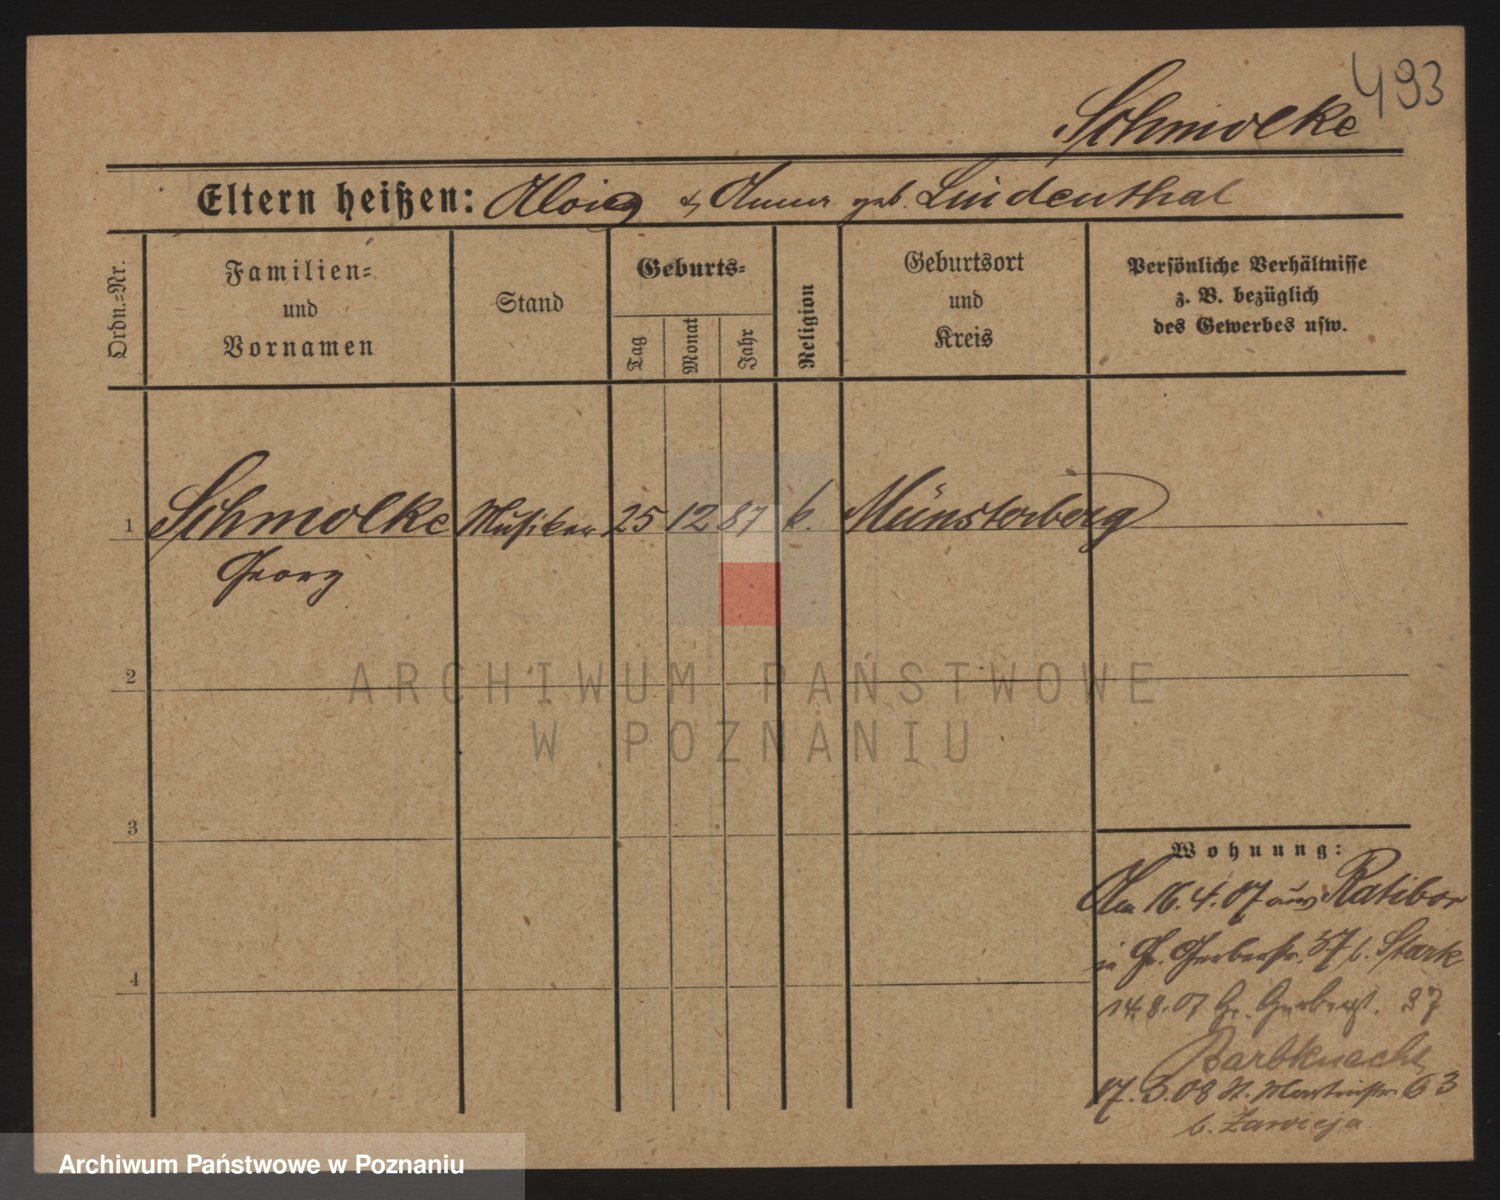 493
Schmolke
Eltern heißen: Alois & Anna geb. Lindenthal
Ordn.=Nr.
Familien=
und
Vornamen
Stand
Geburts=
Tag
Monat
Jahr
Religion
Geburtsort
und
Kreis
Persönliche Verhältnisse
z. B. bezüglich
des Gewerbes usw.
1 Schmolke Musiker 25 12 87 k. Münsterberg
Georg
2
3
4
Wohnung:
Am 16.4.07 aus Ratibor
in Gr. Gerberstr. 37 b. Stark
14.8.07 Gr. Gerberst. 37
Barbknecht
17.3.08 St. Martinstr. 63
b. Zawieja
ARCHIWUM PAŃSTWOWE
W POZNANIU
Archiwum Państwowe w Poznaniu